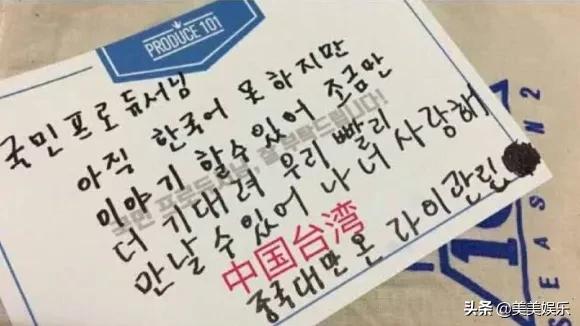 PRODUCE 101
국민 프로듀서님
아직 한국어 못 하지만
이야기 할 수 있어 조금만
더 기대려 우리 빨리
만날 수 있어 나 너 사랑해
국민 프로듀서님, 잘 부탁드립니다!
中国台湾
중국대만 온 라이관린
SEASON 2
头条 @美美娱乐